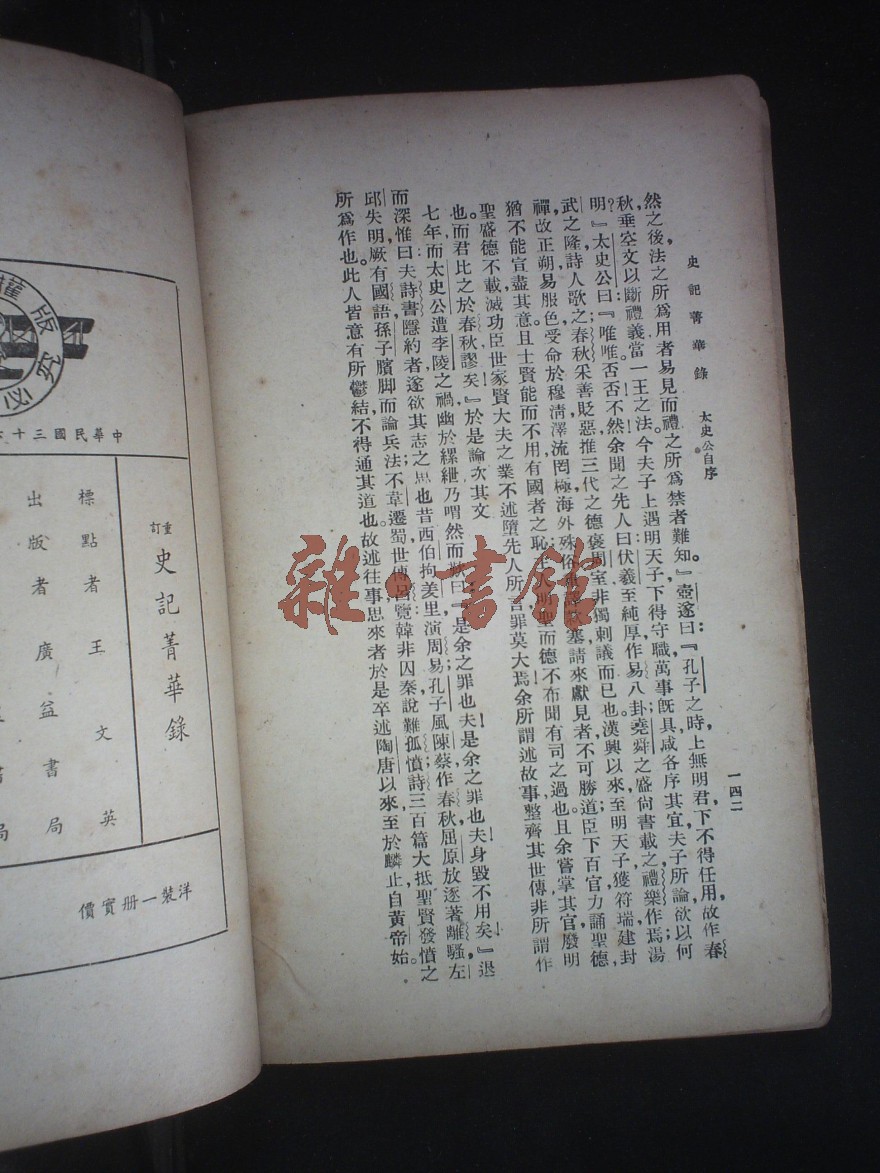 史記菁華錄　太史公自序
一四二
然之後，法之所爲用者易見，而禮之所爲禁者難知。』壺遂曰：『孔子之時，上無明君，下不得任用，故作春
秋，垂空文以斷禮義，當一王之法。今夫子上遇明天子，下得守職，萬事既具，咸各序其宜，夫子所論，欲以何
明？』太史公曰：『唯唯！否否！不然，余聞之先人曰：伏羲至純厚，作易八卦；堯舜之盛，尙書載之，禮樂作焉；湯
武之隆，詩人歌之。春秋采善貶惡，推三代之德，褒周室，非獨刺議而已也。漢興以來，至明天子，獲符瑞，建封
禪，改正朔，易服色，受命於穆淸，澤流罔極，海外殊俗，塞，請來獻見者，不可勝道。臣下百官力誦聖德，
猶不能宣盡其意。且士賢能而不用，有國者之恥；明聖而德不布聞，有司之過也。且余嘗掌其官，廢明
聖盛德不載，滅功臣世家賢大夫之業不述，墮先人所言，罪莫大焉。余所謂述故事，整齊其世傳，非所謂作
也，而君比之於春秋，謬矣！』於是論次其文
七年，而太史公遭李陵之禍，幽於縲紲，乃喟然而歎曰：『是余之罪也夫！是余之罪也夫！身毀不用矣！』退
而深惟曰：夫詩書隱約者，遂欲其志之思也。昔西伯拘羑里，演周易；孔子戹陳蔡，作春秋；屈原放逐，著離騷；左
邱失明，厥有國語；孫子臏脚，而論兵法；不韋遷蜀，世傳呂覽；韓非囚秦，說難孤憤；詩三百篇，大抵聖賢發憤之
所爲作也。此人皆意有所鬱結，不得通其道也，故述往事，思來者。於是卒述陶唐以來，至於麟止，自黃帝始。
權版究必
中華民國三十六
重訂 史記菁華錄
標點者 王文英
出版者 廣益書局
局
洋裝一册實價
雜·書館